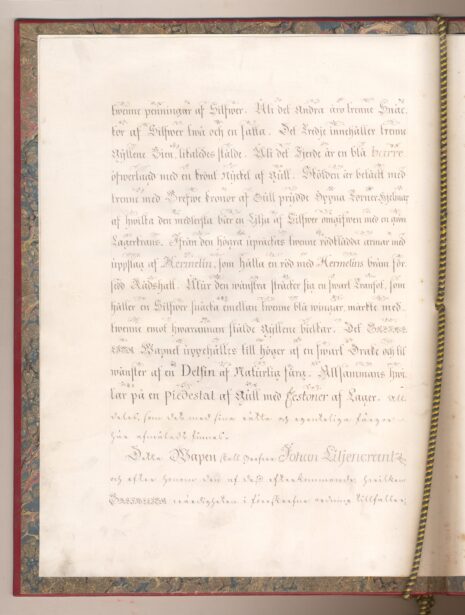 twenne penningar af Silfwer. Uti det Andra äro trenne Snäc-
kor af Silfwer twå och en satta. Det Tredje innehåller trenne
Gyllene Bien, likaledes stälde. Uti det Fjerde är en blå barre
öfwerlagd med en krönt Nyckel af Gull. Skölden är betäckt med
trenne med Grefwe kronor af Gull prydde Öppna Torner-Hjelmar
af hwilka den medlersta bär en Lilja af Silfwer omgifwen med en grön
Lagerkrans. Ifrån den högra upräckes twenne rödklädda armar med
uppslag af Hermelin, som hålla en röd med Hermelins bräm för-
sedd Rådshatt. Utur den wänstra sträcker sig en swart Tranhals, som
håller en Silfwer snäcka emellan twenne blå wingar, märkte med
twenne emot hwarannan stälde Gyllene bjelkar. Det Grefwe-
liga Wapnet uppehålles till höger af en swart Drake och til
wänster af en Delfin af Naturlig färg. Allsammans hwi-
lar på en Piedestal af Gull med Festoner af Lager. Alt-
deles, som det med sina rätta och egenteliga färgor
här afmåladt finnes.
Detta Wapen skall Grefwe Johan Liljencrantz,
och efter honom den af dess efterkommande, hwilken
Grefweliga wärdigheten i föreskrefne ordning tillfaller,